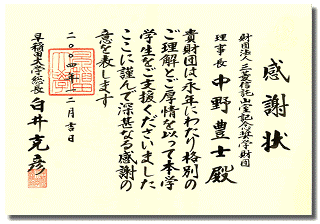 感謝状
財団法人三菱信託山室記念奨学財団
理事長 中野豊士殿
貴財団は永年にわたり格別の
ご理解とご厚情を以って本学
学生をご支援くださいました
ここに謹んで深甚なる感謝の
意を表します
二〇〇四年一二月吉日
早稲田大学総長 白井克彦